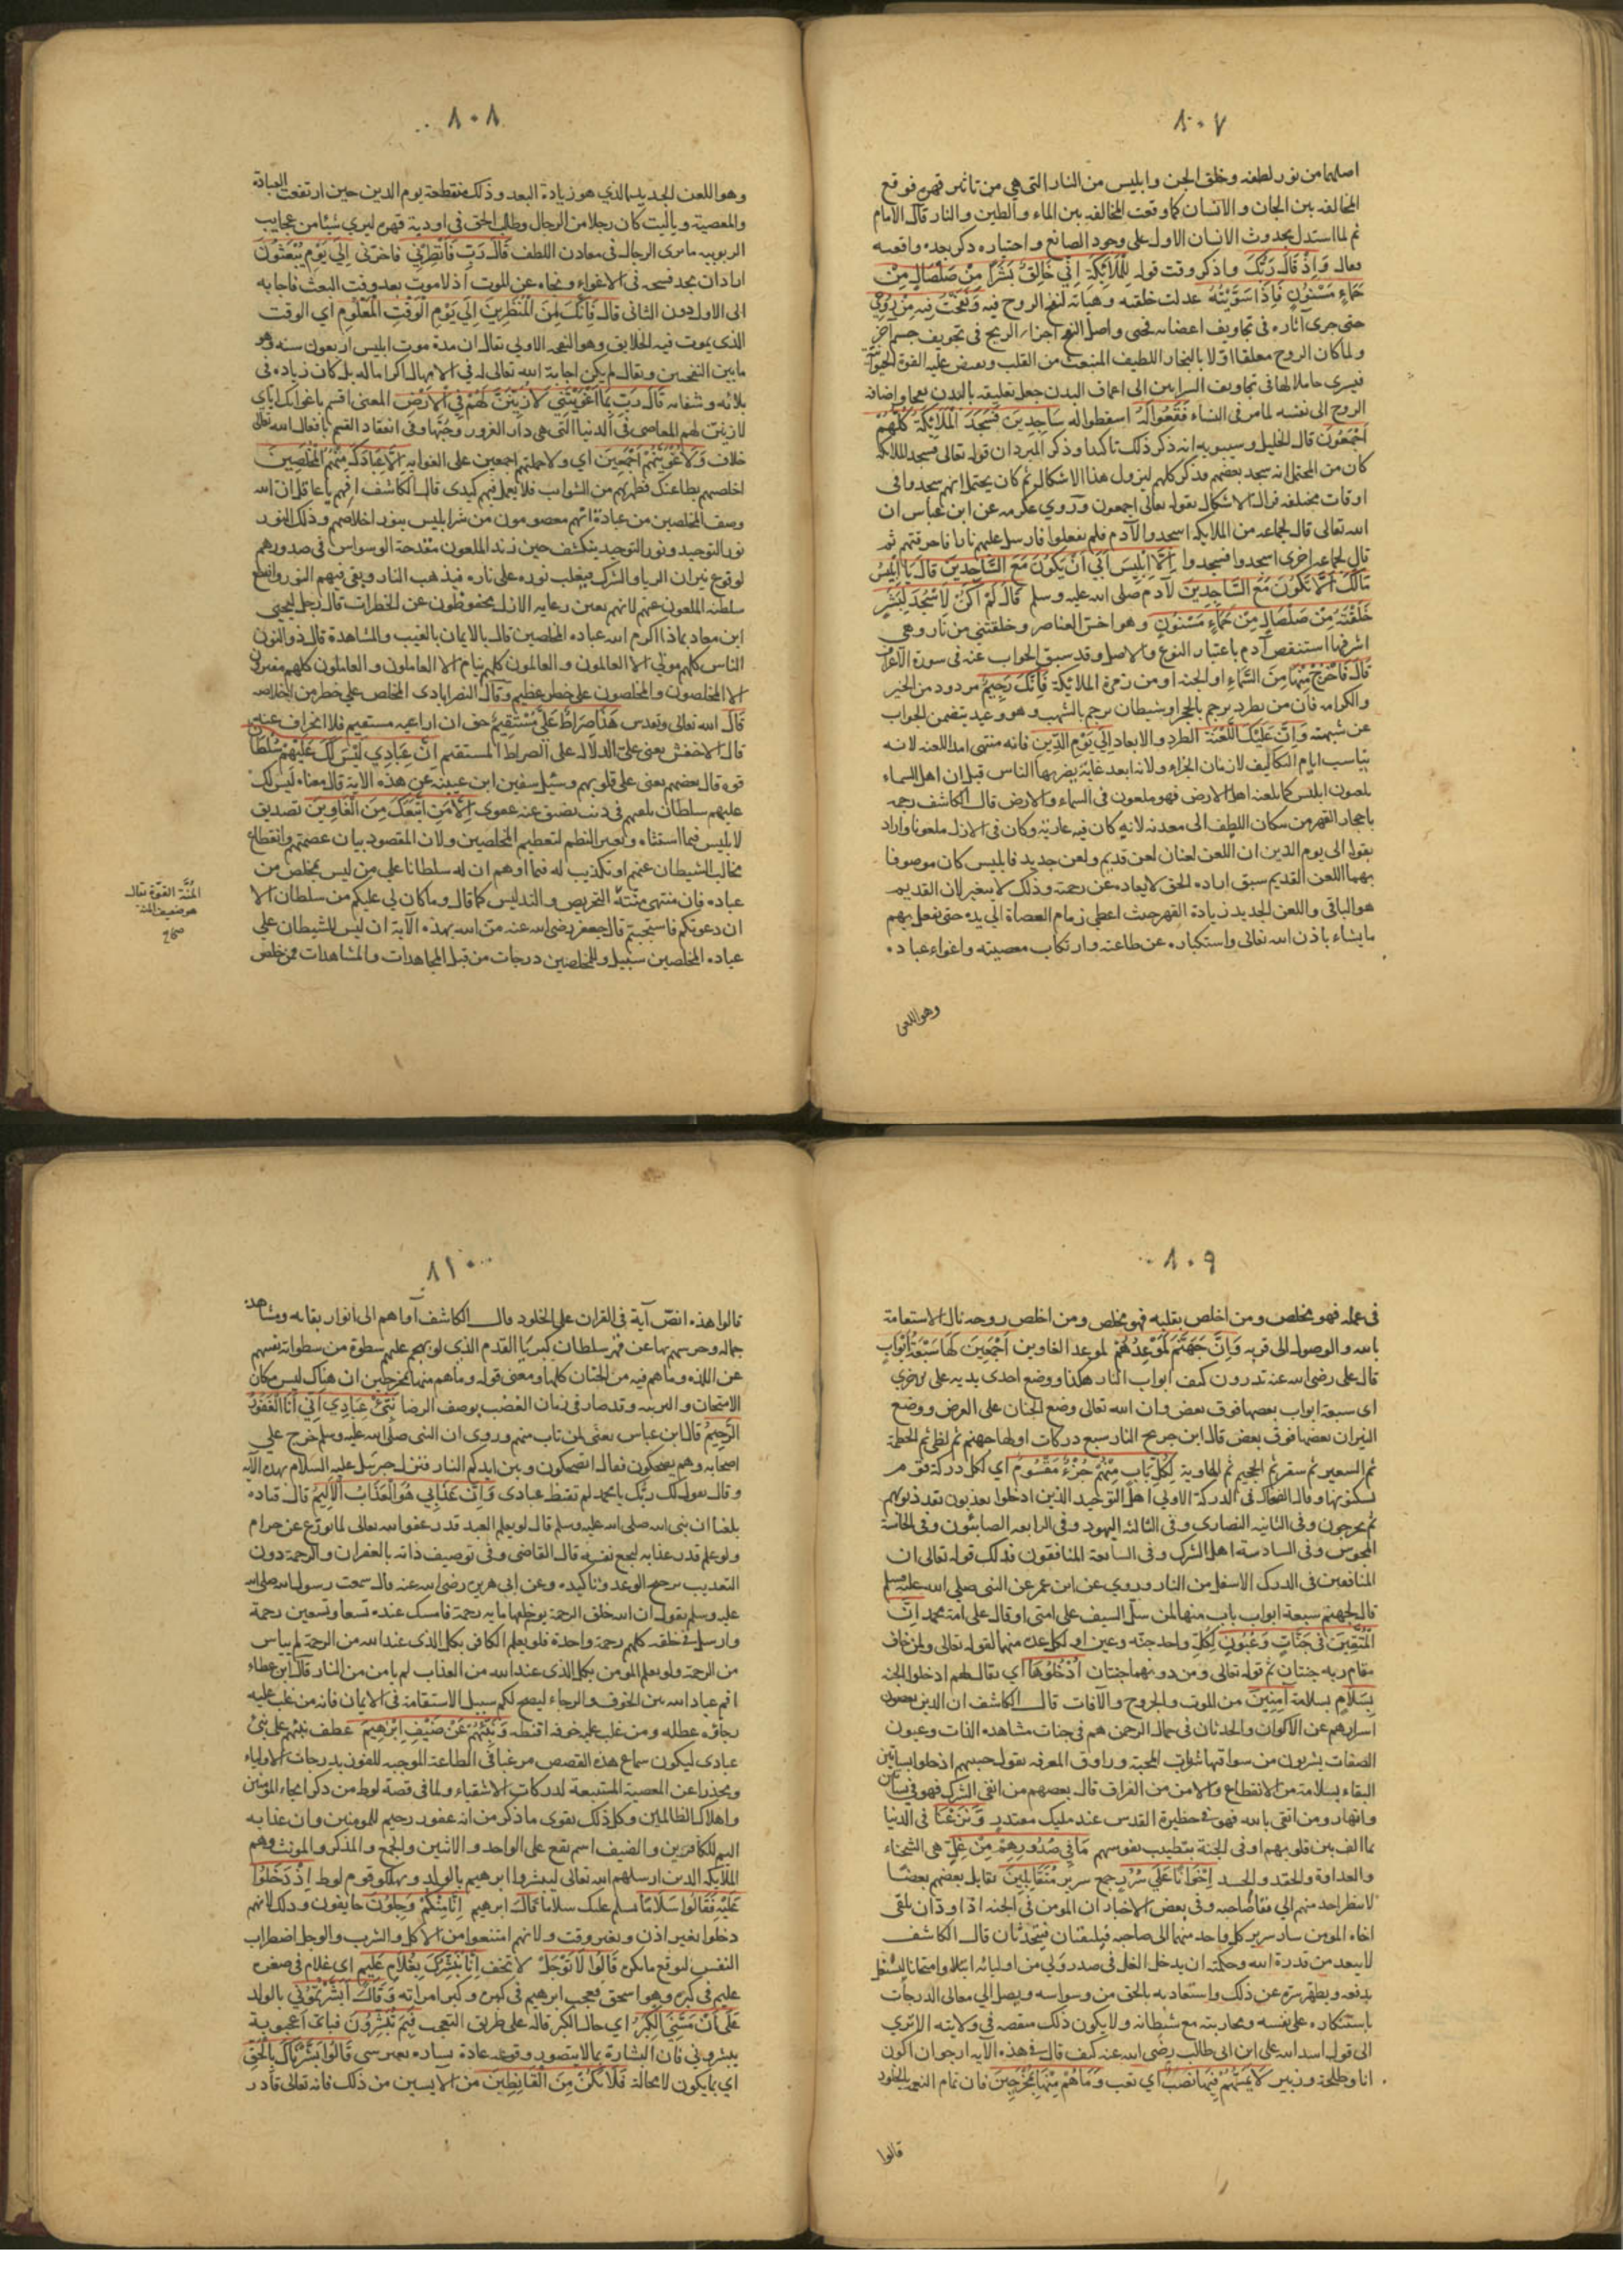 ٨٠٧
اصلهما من نور لطفه وخلق الجن وابليس من النار التي هي من تاثير قهره فوقع
المخالفه بين الجان والانسان كما وقعت المخالفه بين الماء والطين والنار قال الامام
ثم لما استدل بحدوث الانسان الاول على وجود الصانع واختياره ذكر بعده واقعته
فقال وَاِذْ قَالَ رَبُّكَ واذكر وقت قوله لِلْمَلَائِكَةِ اِنّي خَالِقٌ بَشَرًا مِنْ صَلْصَالٍ مِنْ
حَمَاءٍ مَسْنُونٍ فَاِذَا سَوَّيْتُهُ عدلت خلقته وهياته لنفخ الروح فيه وَنَفَخْتُ فِيهِ مِنْ رُوحِي
حتى جرى آثاره في تجاويف اعضائه فحيي واصل النفخ اجراء الريح في تجويف جسم آخر
ولما كان الروح متعلقا اولا بالبخار اللطيف المنبعث من القلب ويفيض عليه القوة الحيوانية
فيسري حاملا لها في تجاويف الشرايين الى اعماق البدن جعل تعليقه بالبدن نفخا واضافه
الروح الى نفسه لما مر في النساء فَقَعُوا لَهُ اسقطوا له سَاجِدِينَ فَسَجَدَ الْمَلَائِكَةُ كُلُّهُمْ
اَجْمَعُونَ قال الخليل وسيبويه انه ذكر ذلك تاكيدا وذكر المبرد ان قوله تعالى فسجد الملائكة
كان من المحتمل انه سجد بعضهم فذكر كلهم ليزول هذا الاشكال ثم كان يحتمل انهم سجدوا في
اوقات مختلفه فزال الاشكال بقوله تعالى اجمعون وروي عكرمه عن ابن عباس ان
الله تعالى قال لجماعه من الملايكه اسجدوا لآدم فلم يفعلوا فارسل عليهم نارا فاحرقتهم ثم
قال لجماعه اخرى اسجدوا فسجدوا اِلَّا اِبْلِيسَ اَبَى اَنْ يَكُونَ مَعَ السَّاجِدِينَ قَالَ يَا اِبْلِيسُ
مَالَكَ اَلَّا تَكُونَ مَعَ السَّاجِدِينَ لآدم صلى الله عليه وسلم قَالَ لَمْ اَكُنْ لِاَسْجُدَ لِبَشَرٍ
خَلَقْتَهُ مِنْ صَلْصَالٍ مِنْ حَمَاءٍ مَسْنُونٍ وهو اخس العناصر وخلقتني من نار وهي
اشرفها استنقص آدم باعتبار النوع والاصل وقد سبق الجواب عنه في سورة الاعراف
قَالَ فَاخْرُجْ مِنْهَا مِنَ السَّمَاءِ او الجنه او من زمرة الملائكة فَاِنَّكَ رَجِيمٌ مردود من الخير
والكرامه فان من يطرد يرجم بالحجر او شيطان يرجم بالشهب وهو وعيد يتضمن الجواب
عن شبهته وَاِنَّ عَلَيْكَ اللَّعْنَةَ الطرد والابعاد اِلَى يَوْمِ الدِّينِ فانه منتهى امد اللعنه لانه
يناسب ايام التكاليف لا زمان الجزاء ولانه ابعد غاية يضربها الناس قيل ان اهل السماء
يلعنون ابليس كما يلعنه اهل الارض فهو ملعون في السماء والارض قال الكاشف رحمه
باحجار القهر من سكان اللطف الى معدنه لانه كان فيه عارية وكان في الازل ملعونا واراد
بقوله الى يوم الدين ان اللعن لعنان لعن قديم ولعن جديد فابليس كان موصوفا
بهما اللعن القديم سبق اراده الحق لابعاده عن رحمته وذلك لا يتغير لان القديم
هو الباقي واللعن الجديد زيادة القهر حيث اعطى زمام العصاة الى يده حتى يفعل بهم
ما يشاء باذن الله تعالى واستكباره عن طاعته وارتكاب معصيته واغواء عباده
وهو اللعن
٨٠٨
وهو اللعن الجديد الذي هو زيادة البعد وذلك منقطعة يوم الدين حين ارتفعت العبادة
والمعصية وياليت كان رجلا من الرجال وطلب الحق في اودية قهره ليرى شيئا من عجايب
الربوبيه ما يرى الرجال في معادن اللطف قَالَ رَبِّ فَاَنْظِرْنِي فاخرني اِلَى يَوْمِ يُبْعَثُونَ
اراد ان يجد فسحه في الاغواء ونجاه عن الموت اذ لا موت بعد وقت البعث فاجابه
الى الاول دون الثاني قَالَ فَاِنَّكَ مِنَ الْمُنْظَرِينَ اِلَى يَوْمِ الْوَقْتِ الْمَعْلُومِ اي الوقت
الذي يموت فيه الخلايق وهو النفخه الاولى يقال ان مدة موت ابليس اربعون سنه وهو
مابين النفختين ويقال لم يكن اجابة الله تعالى له في الامهال اكراما له بل كان زياده في
بلائه وشقائه قَالَ رَبِّ بِمَا اَغْوَيْتَنِي لَاُزَيِّنَنَّ لَهُمْ فِي الْاَرْضِ المعنى اقسم باغوائك اياي
لازينن لهم المعاصي في الدنيا التي هي دار الغرور وحبها وفي انعقاد القسم بافعال الله تعالى
خلاف وَلَاُغْوِيَنَّهُمْ اَجْمَعِينَ اي ولاحملنهم اجمعين على الغوايه اِلَّا عِبَادَكَ مِنْهُمُ الْمُخْلَصِينَ
اخلصهم بطاعتك فطهرتهم من الشوايب فلا يعمل فيهم كيدي قال الكاشف افهم ياعاقل ان الله
وصف المخلصين من عباده انهم معصومون من شر ابليس بنور اخلاصهم وذلك النور
نور التوحيد ونور التوحيد ينكشف حين زند الملعون مقدحة الوسواس في صدورهم
لوقوع نيران الريا والشرك فيغلب نوره على ناره فيذهب النار ويبقى فيهم النور وانقطع
سلطنه الملعون عنهم لانهم بعين رعايه الازل محفوظون عن الخطرات قال رجل ليحيى
ابن معاد بماذا اكرم الله عباده المخلصين قال بالايمان بالغيب والمشاهدة قال ذو النون
الناس كلهم موتى الا العالمون والعالمون كلهم نيام الا العاملون والعاملون كلهم مغترون
الا المخلصون والمخلصون على خطر عظيم وقال النصرابادى المخلص على خطر من اخلاصه
قَالَ الله تعالى وتقدس هَذَا صِرَاطٌ عَلَيَّ مُسْتَقِيمٌ حق ان اراعيه مستقيم فلا انحراف عنه
قال الاخفش يعني علي الدلاله على الصراط المستقيم اِنَّ عِبَادِي لَيْسَ لَكَ عَلَيْهِمْ سُلْطَانٌ
قوه قال بعضهم يعني على قلوبهم وسئل سفين ابن عيينه عن هذه الاية قال معناه ليس لك
عليهم سلطان يلقيهم في ذنب يضيق عنه عفوي اِلَّا مَنِ اتَّبَعَكَ مِنَ الْغَاوِينَ تصديق
لابليس فيما استثناه وتغيير النظم لتعظيم المخلصين ولان المقصود بيان عصمتهم وانقطاع
مخالب الشيطان عنهم او تكذيب له فيما اوهم ان له سلطانا على من ليس بمخلص من
عباده فان منتهى منته التحريض والتدليس كما قال وما كان لي عليكم من سلطان الا
ان دعوتكم فاستجبتم قال جعفر رضي الله عنه من الله بهذه الآية ان ليس للشيطان على
عباده المخلصين سبيل وللمخلصين درجات من قبل المجاهدات والمشاهدات فمن خلص
المُنَّة القوّة يقال
هو ضعيف المنة
صحاح
٨٠٩
في عمله فهو مخلص ومن اخلص بقلبه فهو مخلص ومن اخلص روحه نال الاستقامة
بالله والوصول الى قربه وَاِنَّ جَهَنَّمَ لَمَوْعِدُهُمْ لموعد الغاوين اَجْمَعِينَ لَهَا سَبْعَةُ اَبْوَابٍ
قال علي رضي الله عنه تدرون كيف ابواب النار هكذا ووضع احدى يديه على الاخرى
اي سبعة ابواب بعضها فوق بعض وان الله تعالى وضع الجنان على العرض ووضع
النيران بعضها فوق بعض قال ابن جريح النار سبع دركات اولها جهنم ثم لظى ثم الحطمة
ثم السعير ثم سقر ثم الجحيم ثم الهاوية لِكُلِّ بَابٍ مِنْهُمْ جُزْءٌ مَقْسُومٌ اي لكل دركة قوم
يسكنونها وقال الضحاك في الدركة الاولى اهل التوحيد الذين ادخلوا يعذبون بقدر ذنوبهم
ثم يخرجون وفي الثانيه النصارى وفي الثالثة اليهود وفي الرابعه الصابئون وفي الخامسة
المجوس وفي السادسة اهل الشرك وفي السابعة المنافقون فذلك قوله تعالى ان
المنافقين في الدرك الاسفل من النار وروي عن ابن عمر عن النبي صلى الله عليه وسلم
قال لجهنم سبعة ابواب باب منها لمن سلّ السيف على امتي او قال على امة محمد اِنَّ
الْمُتَّقِينَ فِي جَنَّاتٍ وَعُيُونٍ لكل واحد جنه وعين او لكل عدة منهما لقوله تعالى ولمن خاف
مقام ربه جنتان ثم قوله تعالى ومن دونهما جنتان اُدْخُلُوهَا اي يقال لهم ادخلوا الجنه
بِسَلَامٍ بسلامة آمِنِينَ من الموت والجروح والآفات قال الكاشف ان الذين
اسرارهم عن الاكوان والحدثان في جمال الرحمن هم في جنات مشاهده الذات وعيون
الصفات يشربون من سواقيها شراب المحبة وراوق المعرفه يقول حبيبهم ادخلوا بساتين
البقاء بسلامة من الانقطاع والامن من الفراق قال بعضهم من اتقى الشرك فهو في بساتين
وانهار ومن اتقى بالله فهو في حظيرة القدس عند مليك مقتدر وَنَزَعْنَا في الدنيا
بما الف بين قلوبهم او في الجنة بتطييب نفوسهم مَا فِي صُدُورِهِمْ مِنْ غِلٍّ هي الشحناء
والعداوة والحقد والحسد اِخْوَانًا عَلَى سُرُرٍ جمع سرير مُتَقَابِلِينَ يقابل بعضهم بعضا
لا ينظر احد منهم الى قفا صاحبه وفي بعض الاخبار ان المومن في الجنه اذا ود ان يلقى
اخاه المومن سار سرير كل واحد منهما الى صاحبه فيلتقيان فيتحدثان قال الكاشف
لا يبعد من قدرة الله وحكمته ان يدخل الغل في صدر ولي من اوليائه ابتلاء وامتحانا ليشتغل
بدفعه ويطهر سره عن ذلك واستعاذ به بالحق من وسواسه ويصل الى معالي الدرجات
باستنكاره على نفسه ومحاربته مع شيطانه ولا يكون ذلك منقصه في ولايته الا ترى
الى قول اسد الله علي ابن ابي طالب رضي الله عنه كيف قال في هذه الآيه ارجو ان اكون
انا وطلحة وزبير لَا يَمَسُّهُمْ فِيهَا نَصَبٌ اي تعب وَمَا هُمْ مِنْهَا بِمُخْرَجِينَ فان تمام النعيم بالخلود
قالوا
٨١٠
قالوا هذه انصّ آية في القران على الخلود قال الكاشف آواهم الى انوار بقائه ومشاهدة
جماله وحرسهم بها عن قهر سلطان كبريا القدم الذي لو يهجم عليهم سطوة من سطواته نفيهم
عن اللذه وما هم فيه من الجنان كلها ومعنى قوله وما هم منها بمخرجين ان هناك ليس مكان
الامتحان والتربيه وقد صار في زمان الغضب بوصف الرضا نَبِّئْ عِبَادِي اَنِّي اَنَا الْغَفُورُ
الرَّحِيمُ قال ابن عباس يعني لمن تاب منهم وروي ان النبي صلى الله عليه وسلم خرج على
اصحابه وهم يضحكون فقال اتضحكون وبين ايديكم النار فنزل جبرئيل عليه السلام بهذه الآيه
وقال يقول لك ربك يا محمد لم تقنط عبادي وَاَنَّ عَذَابِي هُوَ الْعَذَابُ الْاَلِيمُ قال قتاده
بلغنا ان نبي الله صلى الله عليه وسلم قال لو يعلم العبد قدر عفو الله تعالى لما تورّع عن حرام
ولو علم قدر عذابه لبجع نفسه قال القاضي وفي توصيف ذاته بالغفران والرحمة دون
التعذيب ترجيح الوعد وتاكيده وعن ابي هريرة رضي الله عنه قال سمعت رسول الله صلى الله
عليه وسلم يقول ان الله خلق الرحمة يوم خلقها مايه رحمة فامسك عنده تسعا وتسعين رحمة
وارسل في خلقه كلهم رحمة واحدة فلو يعلم الكافر بكل الذي عند الله من الرحمة لم يياس
من الرحمة ولو يعلم المومن بكل الذي عند الله من العذاب لم يامن من النار قال ابن عطاء
اقم عباد الله بين الخوف والرجاء ليصح لكم سبيل الاستقامة في الايمان فانه من غلب عليه
رجاؤه عطله ومن غلب عليه خوفه اقنطه وَنَبِّئْهُمْ عَنْ ضَيْفِ اِبْرَهِيمَ عطف نبئهم على نبئ
عبادي ليكون سماع هذه القصص مرغبا في الطاعة الموجبه للفوز بدرجات الاولياء
ومحذرا عن المعصية المستتبعة لدركات الاشقياء ولما في قصة لوط من ذكر انجاء المومنين
واهلاك الظالمين وكل ذلك يقوي ما ذكر من انه غفور رحيم للمومنين وان عذابه
اليم للكافرين والضيف اسم يقع على الواحد والاثنين والجمع والمذكر والمونث وهم
الملايكه الذين ارسلهم الله تعالى ليبشروا ابرهيم بالولد ويهلكو قوم لوط اِذْ دَخَلُوا
عَلَيْهِ فَقَالُوا سَلَامًا نسلم عليك سلاما قَالَ ابرهيم اِنَّا مِنْكُمْ وَجِلُونَ خايفون وذلك لانهم
دخلوا بغير اذن وبغير وقت ولانهم امتنعوا من الاكل والشرب والوجل اضطراب
النفس لتوقع ما تكره قَالُوا لَا تَوْجَلْ لا تخف اِنَّا نُبَشِّرُكَ بِغُلَامٍ عَلِيمٍ اي غلام في صغره
عليم في كبره وهو اسحق فعجب ابرهيم في كبره وكبر امراته وَقَالَ اَبَشَّرْتُمُونِي بالولد
عَلَى اَنْ مَسَّنِيَ الْكِبَرُ اي حال الكبر قاله على طريق التعجب فَبِمَ تُبَشِّرُونَ فباي اعجوبة
يبشروني فان البشارة بما لا يتصور وقوعه عادة بشاره بغير شي قَالُوا بَشَّرْنَاكَ بِالْحَقِّ
اي بما يكون لا محالة فَلَا تَكُنْ مِنَ الْقَانِطِينَ من الآيسين من ذلك فانه تعالى قادر